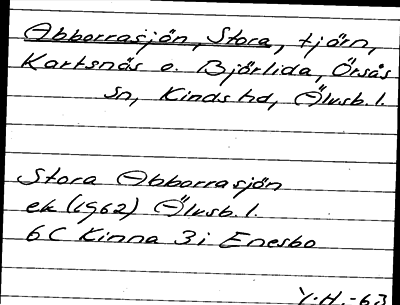 Abborrasjön, Stora, tjärn,
Kartsnäs o. Björlida, Örsås
sn, Kinds hd, Älvsb. l.
Stora Abborrasjön
ek (1962) Älvsb. l.
6C Kinna 3i Enesbo
Y.H.-63